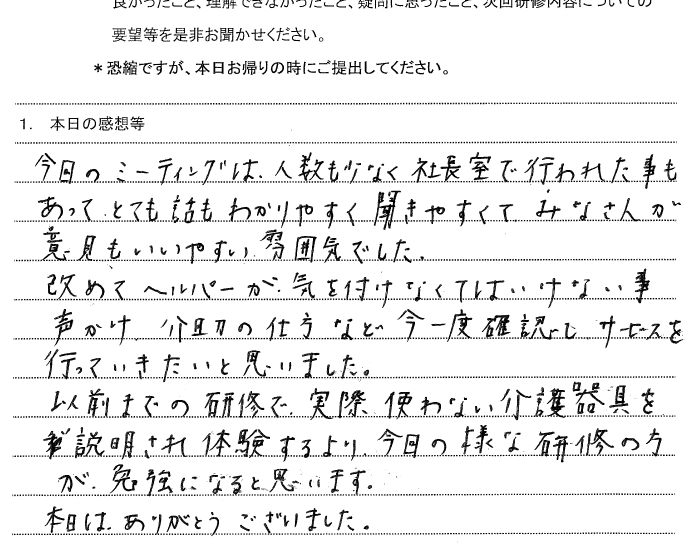 良かったこと、理解できなかったこと、疑問に思ったこと、次回研修内容についての
要望等を是非お聞かせください。
＊恐縮ですが、本日お帰りの時にご提出してください。
1. 本日の感想等
今回のミーティングは、人数も少なく社長室で行われた事も
あって、とても話もわかりやすく聞きやすくてみなさんが
意見もいいやすい雰囲気でした。
改めてヘルパーが気を付けなくてはいけない事
声かけ、介助の仕方など今一度確認しサービスを
行っていきたいと思いました。
以前までの研修で、実際使わない介護器具を
説明され体験するより、今日の様な研修の方
が、勉強になると思います。
本日は、ありがとうございました。